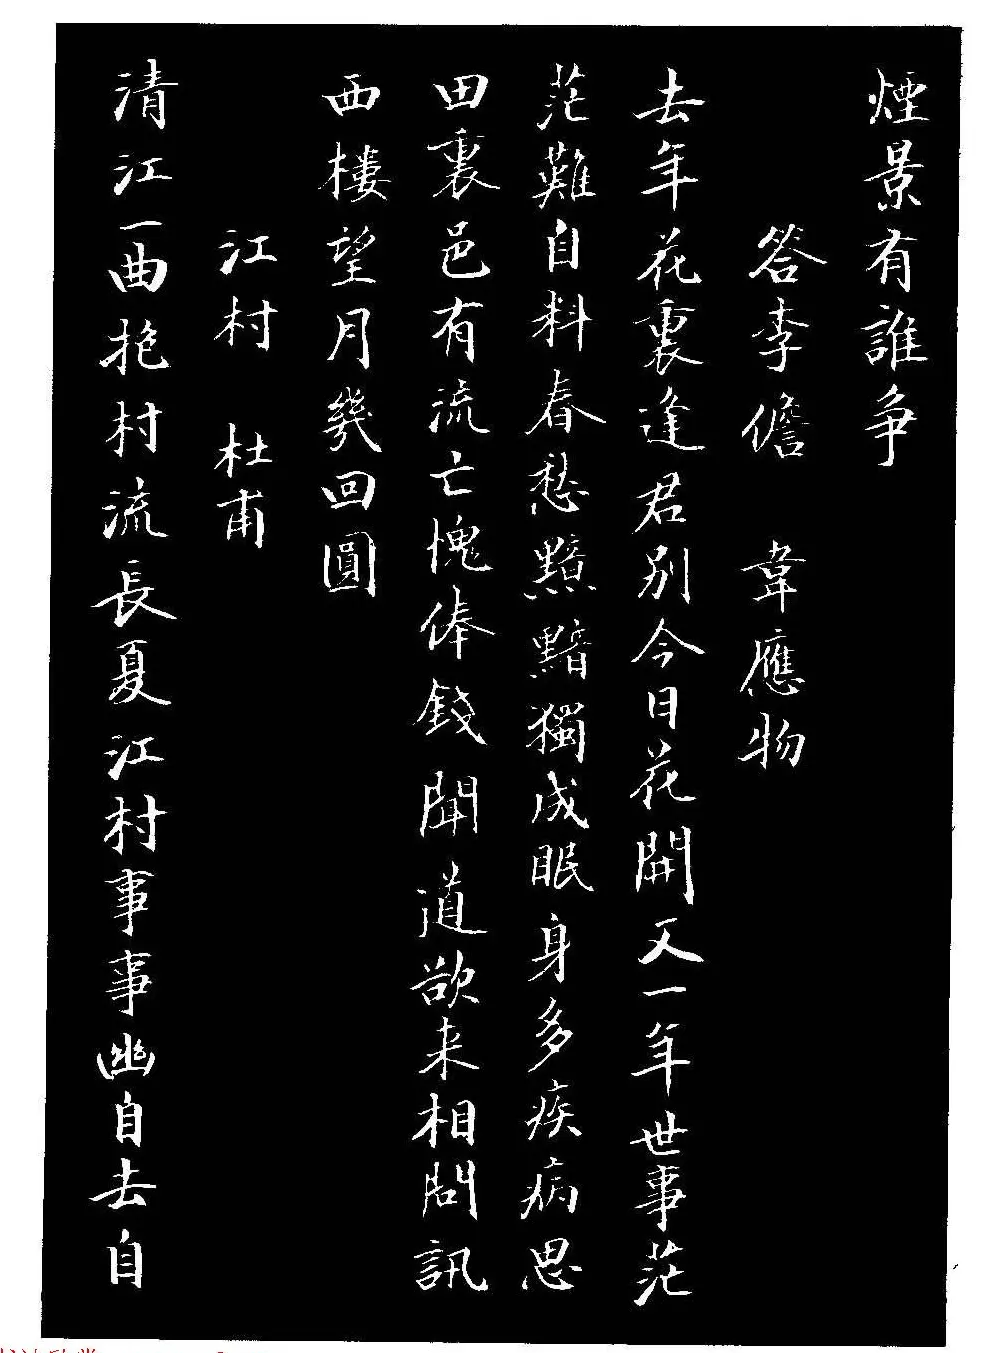 煙景有誰爭
答李儋 韋應物
去年花裏逢君別今日花開又一年世事茫
茫難自料春愁黯黯獨成眠身多疾病思
田裏邑有流亡愧俸錢聞道欲来相問訊
西樓望月幾回圓
江村 杜甫
清江一曲抱村流長夏江村事事幽自去自